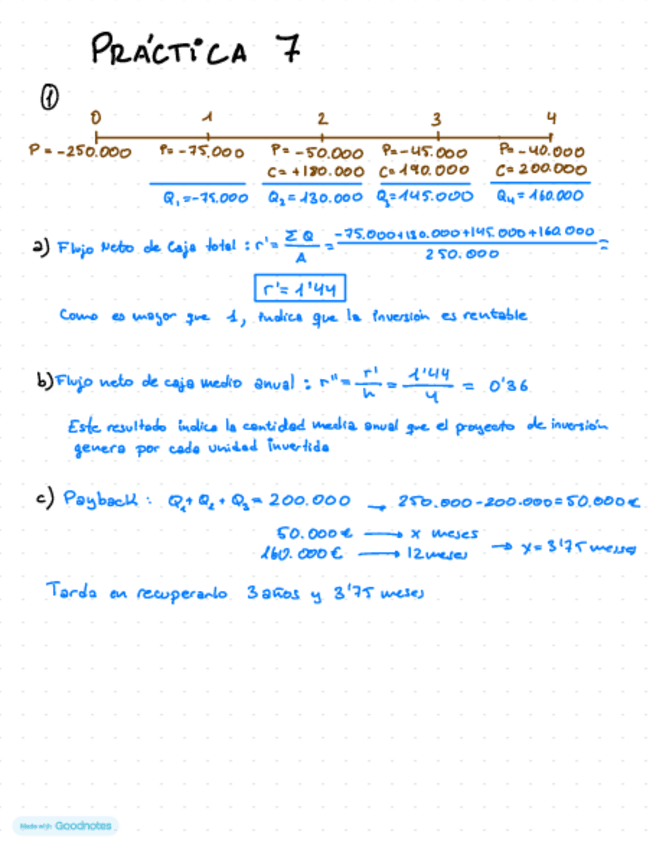 PRÁCTICA 7
①
0 1 2 3 4
P = -250.000 P= -75.000 P= -50.000 P=-45.000 P=-40.000
C= +180.000 C= 190.000 C= 200.000
Q₁=-75.000 Q₂=130.000 Q₃=145.000 Q₄=160.000
a) Flujo Neto de Caja total : r'= ΣQ/A = -75.000+130.000+145.000+160.000/250.000 =
r'= 1'44
Como es mayor que 1, indica que la inversión es rentable
b) Flujo neto de caja medio anual : r''= r'/n = 1'44/4 = 0'36
Este resultado indica la cantidad media anual que el proyecto de inversión
genera por cada unidad invertida
c) Payback : Q₁+Q₂+Q₃= 200.000 → 250.000-200.000=50.000€
50.000€ → x meses
160.000€ → 12 meses → x= 3'75 meses
Tarda en recuperarlo 3 años y 3'75 meses
Made with Goodnotes